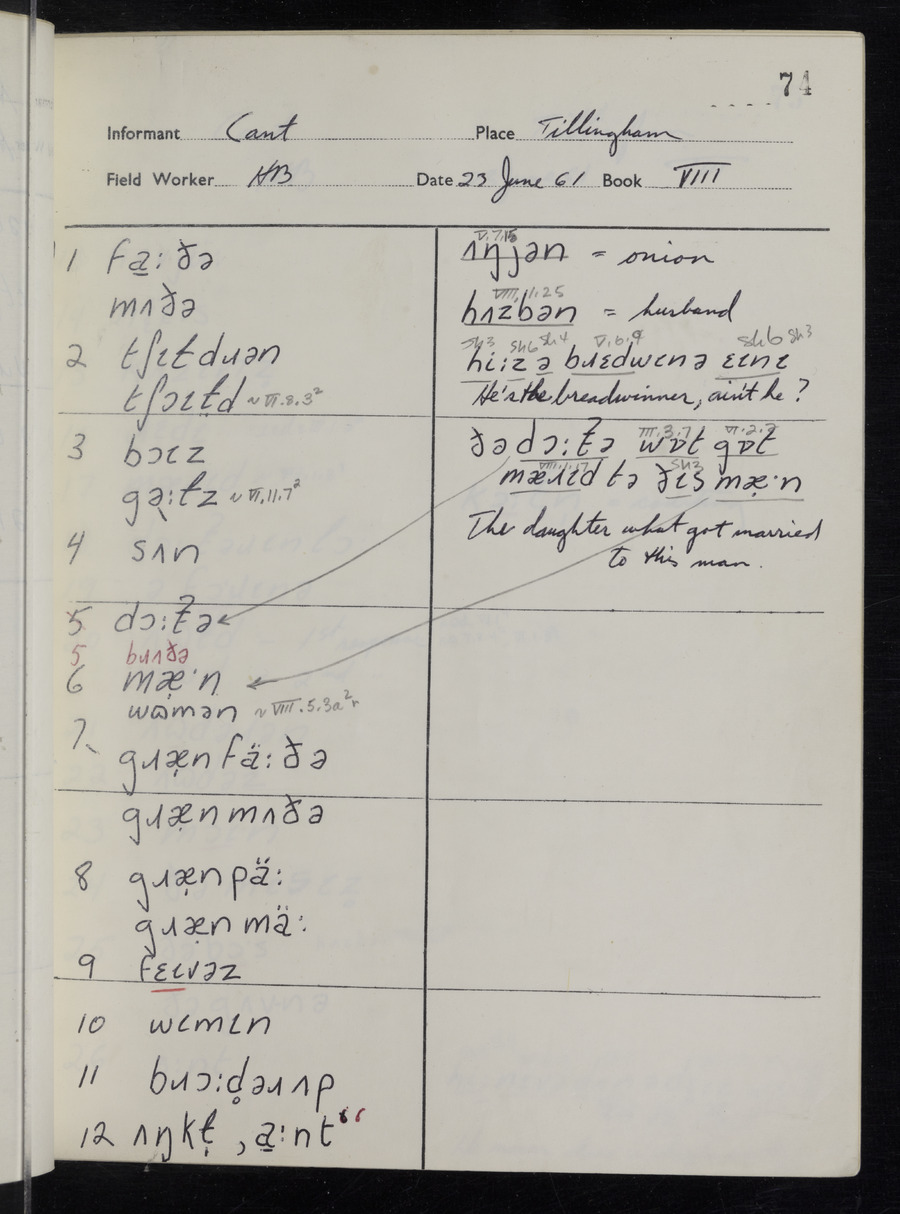 74
Informant Cant Place Tillingham
Field Worker HB Date 23 June 61 Book VIII
1 fa̠: ðə
mʌðə
2 tʃɩtdɹən
tʃɔɩt̬d ~ VI.8.3²
3 bɔɩz
gə̣:ɫz ~ VI.11.7²
4 sʌn
5 dɔ:t̬ə
5 bɹʌðə
6 mæ̣·n
wɷmən ~ VIII.5.3a²r
7 gɹæ̣n fä: ðə
gɹæ̣n mʌðə
8 gɹæ̣n pä:
gɹæ̣n mä:
9 fɛɩvəz
10 wɩmɩn
11 bɹɔ:d̥əɹ ʌp
12 ʌŋkɫ̣ , a̠:nt
V.7.15
ʌŋjən = onion
VIII.1.25
hʌzbən = husband
sh3 sh6 sh4 V.6.9 sh6 sh3
hi:z ə bɹɛdwɩnə ɛɩnɩ
He's the breadwinner, ain't he?
III.3.7
ðə dɔ:t̬ə wɒt gɒt
VIII.1.17 sh2
mæɹɩd tə ðɩs mæ̣·n
The daughter what got married
to this man.